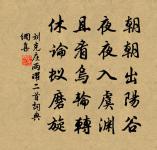 朝朝出陽谷
夜夜入虞淵
且看烏輪轉
休論蟻磨旋
劉克莊兩曜二首詞典
網喜